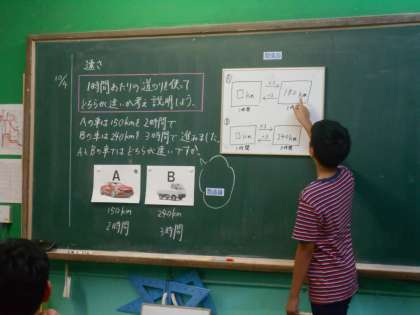 10/4
速さ
1時間あたりの道のりを使って
どちらが速いか考え説明しよう。
Aの車は150kmを2時間で
Bの車は240kmを3時間で進みました。
AとBの車ではどちらが速いですか。
A
B
150km
240km
2時間
3時間
①
□km
150km
1時間
2時間
□km
240km
1時間
3時間